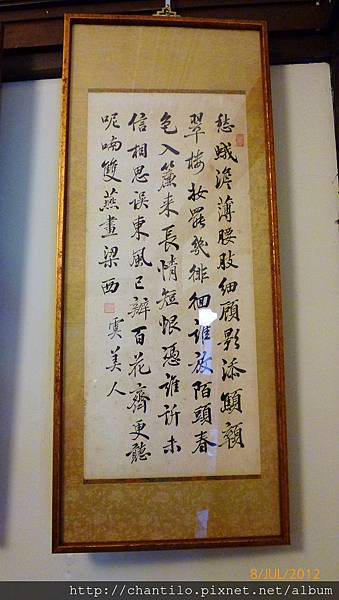 愁蛾澹薄腰肢細顧影添顦顇
翠樓妝罷幾徘徊誰放陌頭春
色入簾来長情短恨憑誰訴未
信相思誤東風已辦百花齊更聽
呢喃雙燕畫梁西 虞美人
8/JUL/2012
http://chantilo.pixnet.net/album